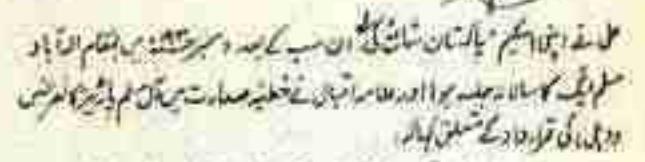 علی نے اپنی اسکیم "پاکستان شائع کی ان سب کے بعد دسمبر ۱۹۳۰ء میں بمقام الہ آباد
مسلم لیگ کا سالانہ جلسہ ہوا اور علامہ اقبال نے خطبۂ صدارت میں آل مسلم پارٹیز کانفرنس
دہلی کی قرارداد کے متعلق کہا کہ